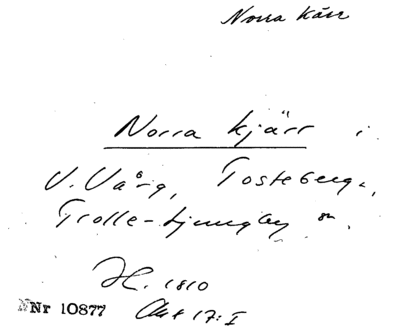 Norra Kärr
Norra kjärr i
V. Vång, Tosteberga,
Trolle-Ljungby sn.
H. 1810
Nr 10877 Akt 17:I